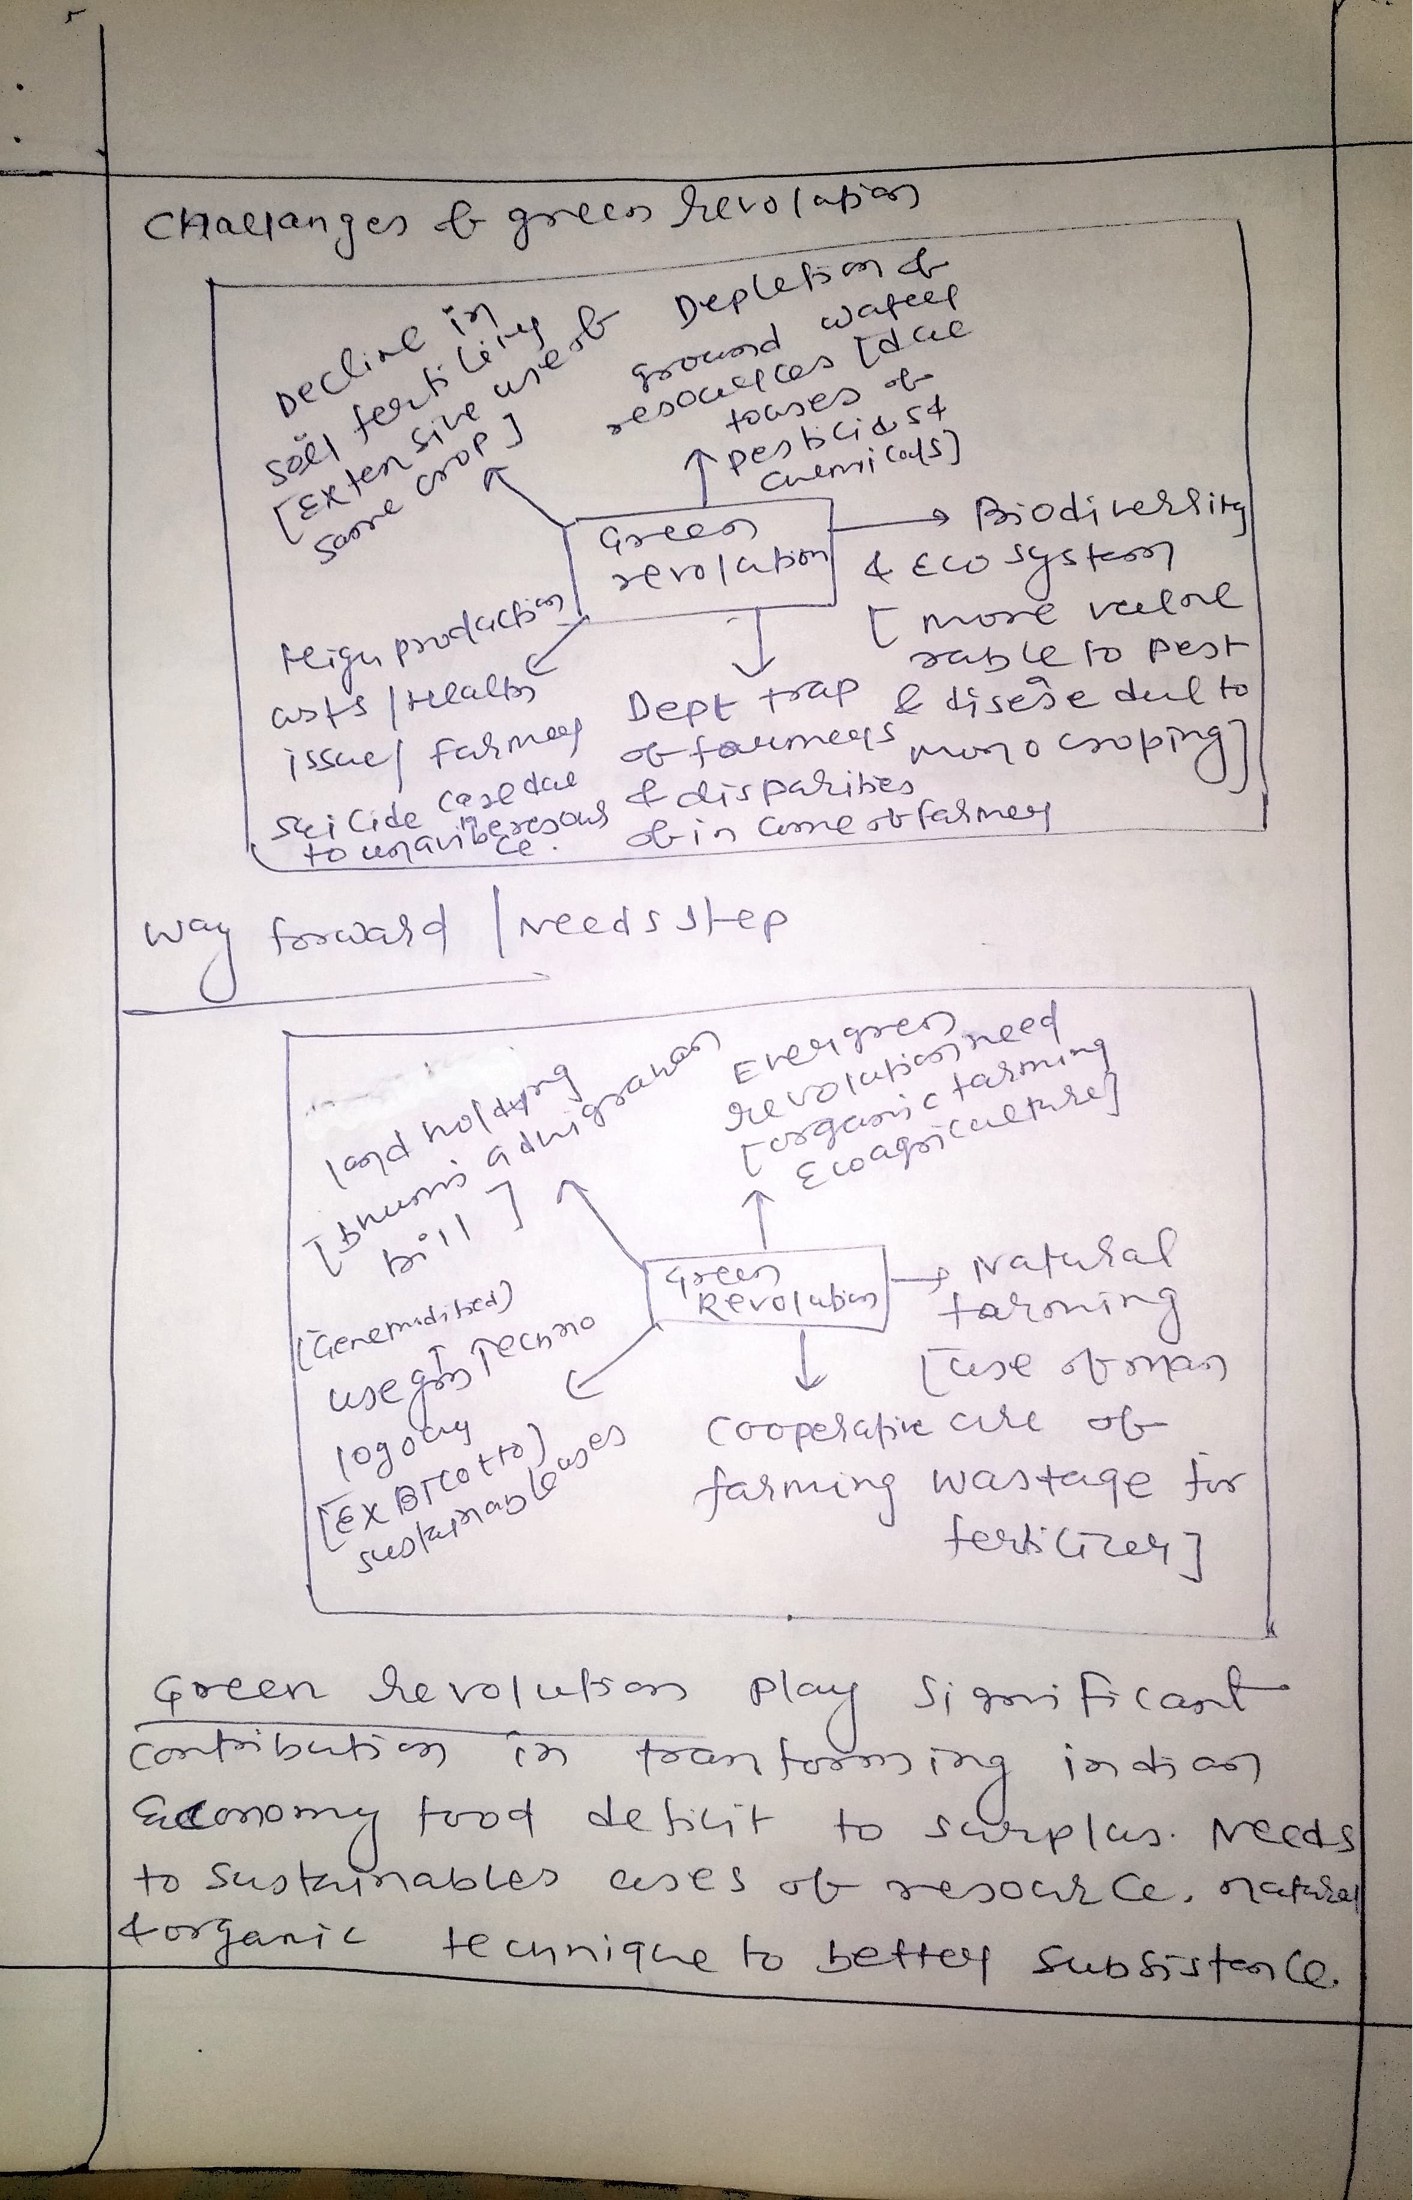 Challanges of green revolution
Decline in
soil fertility
[Extensive use of
same crop]
Depletion of
ground water
resources [due
to uses of
pesticids &
chemicals]
Green
revolution
Biodiversity
& Eco system
[more vulne
rable to pest
& disese due to
mono croping]
High production
costs / Health
issue / farmer
suicide case due
to unavible resour
ce.
Dept trap
of farmers
& disparities
of in come of farmer
way forward / Needs step
land holding
[Bhumi adhigrahan
bill]
Evergreen
revolution need
[organic farming
Ecoagriculture]
Green
Revolution
Natural
farming
[use of
wastage for
fertilizer]
Cooperative
farming
(Genemodified)
use gm Techno
logy
[Ex BT Cotto]
sustainable uses
Green revolution play significant
contribution in transforming indian
Economy food deficit to surplus. Needs
to sustainables uses of resource. natural
& organic technique to better subsistence.